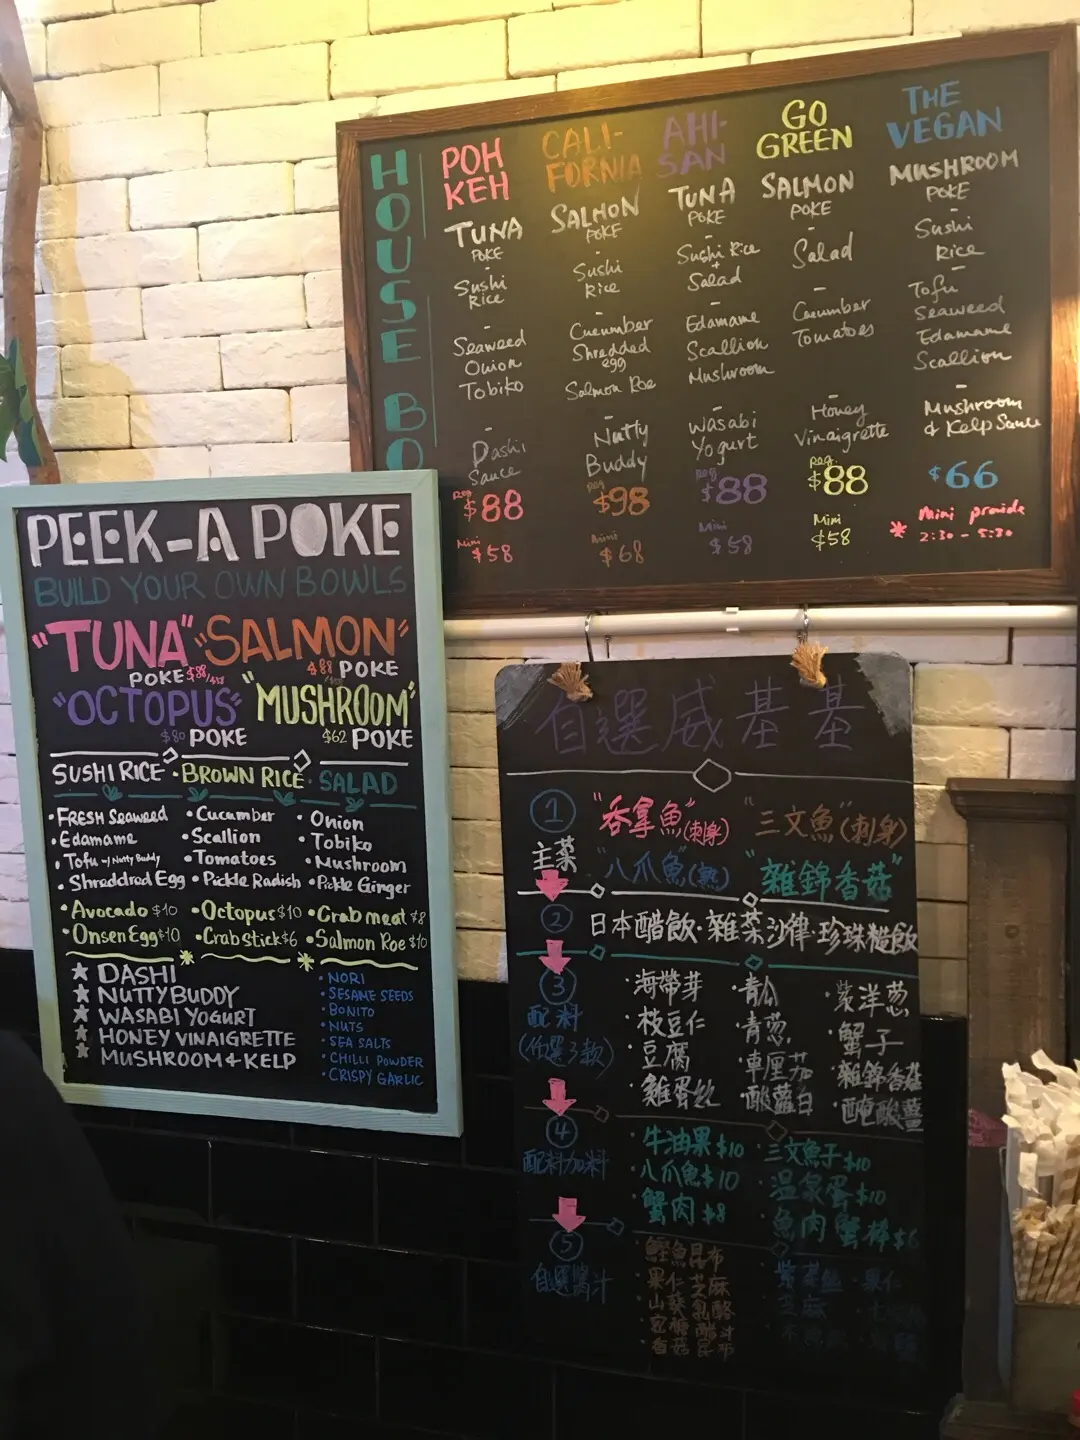 HOUSE BO
POH
KEH
TUNA
POKE
-
Sushi
Rice
-
Seaweed
Onion
Tobiko
-
Dashi
Sauce
Reg $88
Mini $58
CALI-
FORNIA
SALMON
POKE
-
Sushi
Rice
-
Cucumber
Shredded
egg
Salmon Roe
-
Nutty
Buddy
Reg $98
Mini $68
AHI-
SAN
TUNA
POKE
-
Sushi Rice
+
Salad
-
Edamame
Scallion
Mushroom
-
Wasabi
Yogurt
Reg $88
Mini $58
GO
GREEN
SALMON
POKE
-
Salad
-
Cucumber
Tomatoes
-
Honey
Vinaigrette
Reg. $88
Mini $58
THE
VEGAN
MUSHROOM
POKE
-
Sushi
Rice
-
Tofu
Seaweed
Edamame
Scallion
-
Mushroom
& Kelp Sauce
$66
* Mini provide
2:30 - 5:30
PEEK-A POKE
BUILD YOUR OWN BOWLS
"TUNA" "SALMON"
POKE $88/ $88 POKE
"OCTOPUS" "MUSHROOM"
$80 POKE $62 POKE
SUSHI RICE · BROWN RICE · SALAD
• FRESH Seaweed • Cucumber • Onion
• Edamame • Scallion • Tobiko
• Tofu w/ Nutty Buddy • Tomatoes • Mushroom
• Shreddred Egg • Pickle Radish • Pickle Ginger
• Avocado $10 • Octopus $10 • Crab meat $8
• Onsen Egg $10 • Crabstick $6 • Salmon Roe $10
★ DASHI
★ NUTTY BUDDY
★ WASABI YOGURT
★ HONEY VINAIGRETTE
★ MUSHROOM & KELP
• NORI
• SESAME SEEDS
• BONITO
• NUTS
• SEA SALTS
• CHILLI POWDER
• CRISPY GARLIC
自選威基基
① 主菜
"吞拿魚"(刺身) "三文魚"(刺身)
"八爪魚"(熟) "雜錦香菇"
②
日本醋飯·雜菜沙律·珍珠糙飯
③ 配料
(任選3款)
·海帶芽 ·青瓜 ·紫洋葱
·枝豆仁 ·青葱 ·蟹子
·豆腐 ·車厘茄 ·雜錦香菇
·雞蛋絲 ·酸蘿白 ·醃酸薑
④ 配料加料
·牛油果 $10 ·三文魚子 $10
·八爪魚 $10 ·温泉蛋 $10
·蟹肉 $8 ·魚肉蟹棒 $6
⑤ 自選醬汁
·鰹魚昆布
·果仁芝麻
·山葵乳酪